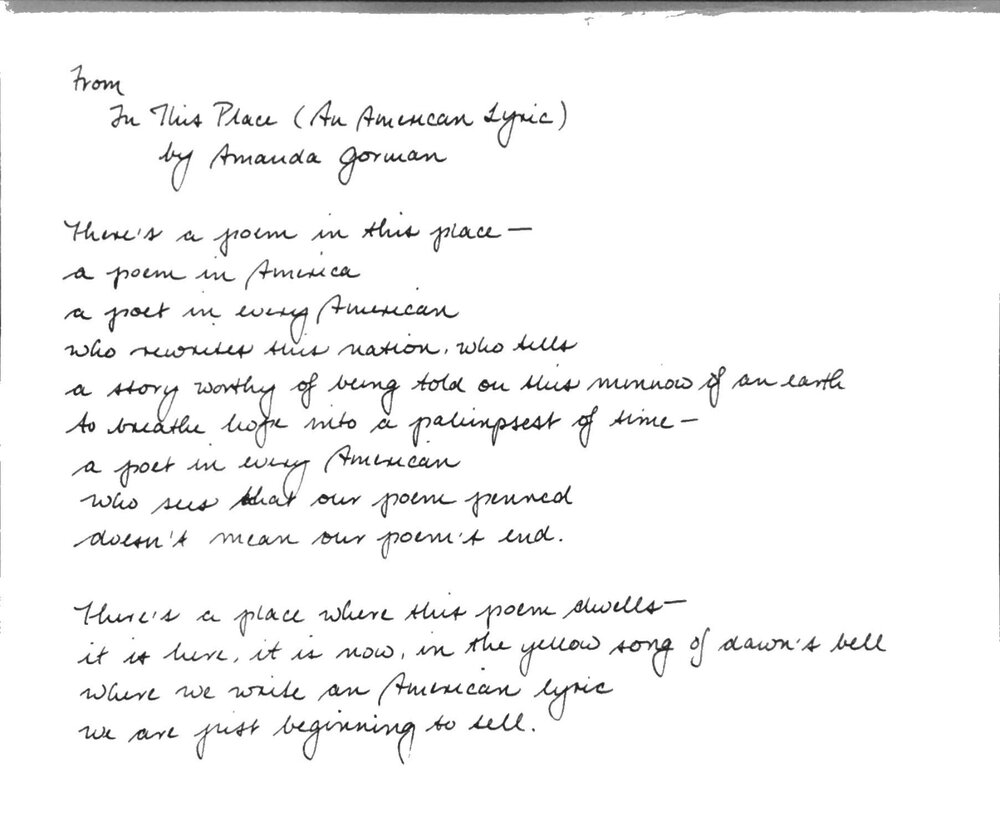 From
In This Place (An American Lyric)
by Amanda Gorman
There's a poem in this place—
a poem in America
a poet in every American
who rewrites this nation, who tells
a story worthy of being told on this minnow of an earth
to breathe hope into a palimpsest of time—
a poet in every American
who sees that our poem penned
doesn't mean our poem's end.
There's a place where this poem dwells—
it is here, it is now, in the yellow song of dawn's bell
where we write an American lyric
we are just beginning to tell.